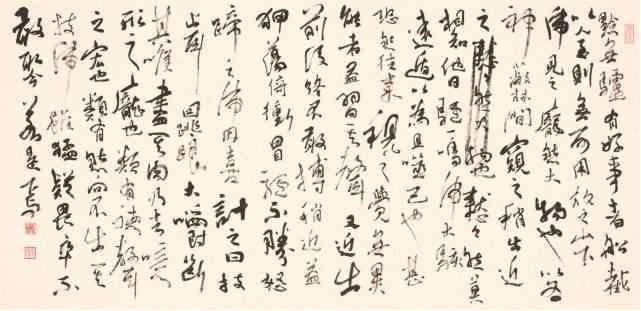 黔無驢有好事者船載
以入至則無可用放之山下
虎見之龐然大物也以為
神蔽林間窺之稍出近
之憖憖然莫
相知他日驢一鳴虎大駭
遠遁以為且噬己也甚
恐然往來視之覺無異
能者益習其聲又近出
前後終不敢搏稍近益
狎蕩倚衝冒驢不勝怒
蹄之虎因喜計之曰技
止此耳因跳踉大㘎斷
其喉盡其肉乃去噫
形之龐也類有德聲
之宏也類有能向不出其
技虎雖猛疑畏卒不
敢取今若是焉